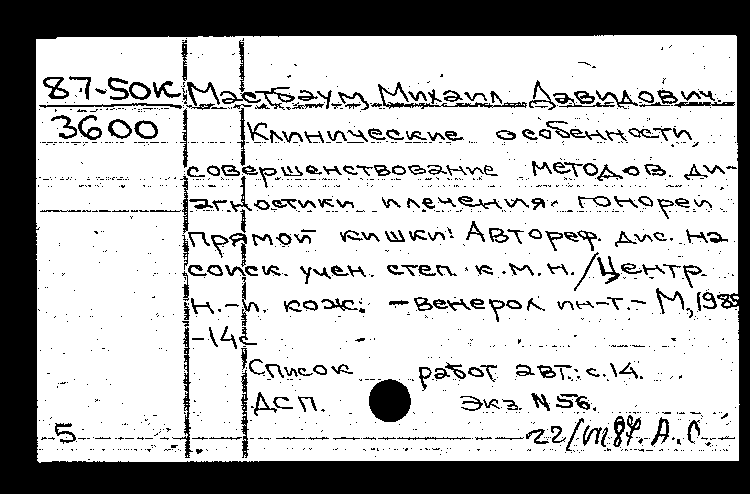 87-50К Мастбаум, Михаил Давидович.
3600 Клинические особенности,
совершенствование методов ди-
агностики и лечения гонореи
прямой кишки: Автореф. дис. на
соиск. учен. степ. к.м.н. / Центр.
н.-и. кож. - венерол ин-т. - М,
-14с
Список работ авт.: с.14.
ДСП. Экз N 56.
5 22/VII 87. А.О.